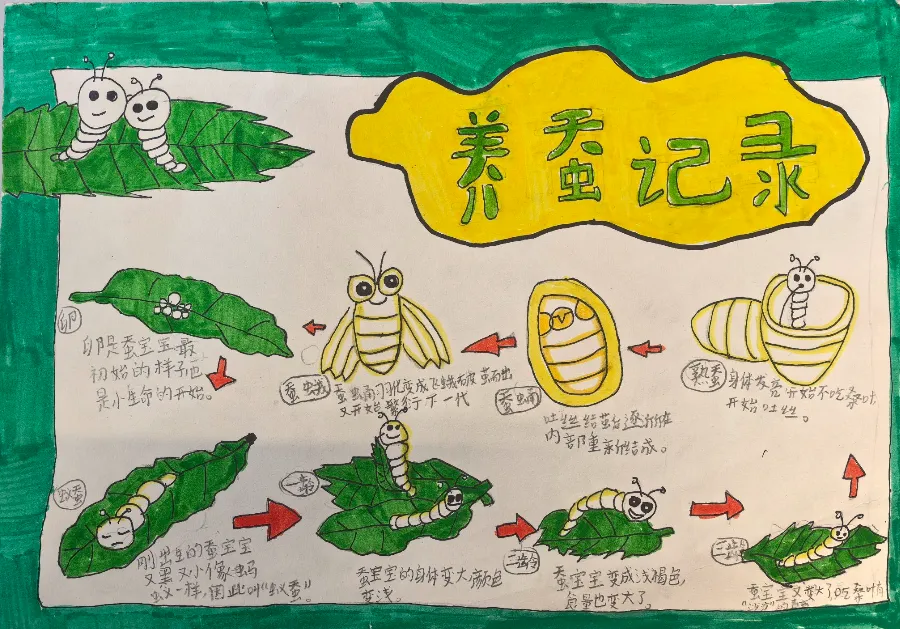 养蚕记录
卵
卵是蚕宝宝最
初始的样子也
是小生命的开始。
蚕蛾
蚕蛹羽化变成飞蛾破茧而出
又开始繁衍下一代
蚕蛹
吐丝结茧后逐渐在
内部重新结成。
熟蚕
身体发亮开始不吃桑叶
开始吐丝。
蚁蚕
刚出生的蚕宝宝
又黑又小像蚂
蚁一样,因此叫"蚁蚕"。
一龄
蚕宝宝的身体变大颜色
变浅。
二龄
蚕宝宝变成浅褐色,
食量也变大了。
三龄
蚕宝宝又变大了,吃桑叶有
"沙沙"的声音